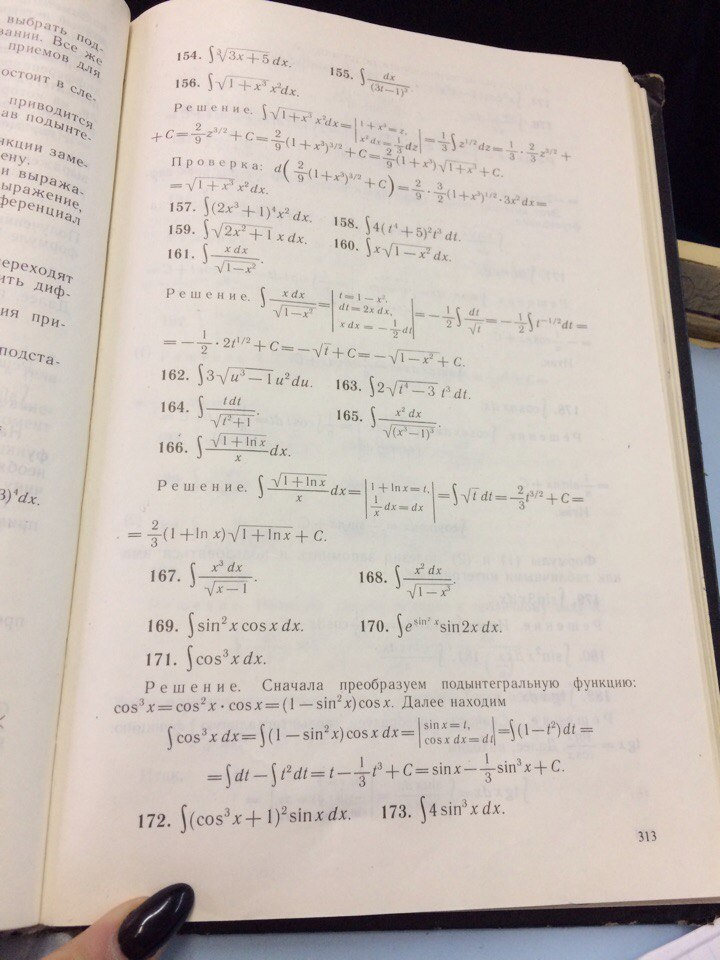 выбрать под-
вании. Все же
приемов для
остоит в сле-
приводится
ав подынте-
нкции заме-
ену.
и выража-
ыражение,
ференциал
переходят
ить диф-
ия при-
подста-
3)⁴dx.
154. ∫∛(3x+5) dx. 155. ∫ dx/(3t−1)²
156. ∫√(1+x³) x²dx.
Решение. ∫√(1+x³) x²dx = |1+x³=z, x²dx=(1/3)dz| = (1/3)∫z^(1/2)dz = (1/3)·(2/3)z^(3/2) +
+C = (2/9)z^(3/2) + C = (2/9)(1+x³)^(3/2) + C = (2/9)(1+x³)√(1+x³) + C.
Проверка: d((2/9)(1+x³)^(3/2) + C) = (2/9)·(3/2)(1+x³)^(1/2)·3x²dx =
= √(1+x³) x²dx.
157. ∫(2x³+1)⁴x² dx. 158. ∫4(t⁴+5)²t³ dt.
159. ∫√(2x²+1) x dx. 160. ∫x√(1−x²) dx.
161. ∫ x dx/√(1−x²).
Решение. ∫ x dx/√(1−x²) = |t=1−x², dt=2x dx, x dx=−(1/2)dt| = −(1/2)∫dt/√t = −(1/2)∫t^(−1/2)dt =
= −(1/2)·2t^(1/2) + C = −√t + C = −√(1−x²) + C.
162. ∫3√(u³−1) u² du. 163. ∫2√(t⁴−3) t³ dt.
164. ∫ t dt/√(t²+1). 165. ∫ x² dx/√((x³−1)³).
166. ∫ √(1+ln x)/x dx.
Решение. ∫ √(1+ln x)/x dx = |1+ln x=t, (1/x)dx=dx| = ∫√t dt = (2/3)t^(3/2) + C =
= (2/3)(1+ln x)√(1+ln x) + C.
167. ∫ x³ dx/√(x−1). 168. ∫ x² dx/√(1−x³).
169. ∫sin² x cos x dx. 170. ∫e^(sin² x) sin 2x dx.
171. ∫cos³ x dx.
Решение. Сначала преобразуем подынтегральную функцию:
cos³ x = cos² x · cos x = (1−sin² x) cos x. Далее находим
∫cos³ x dx = ∫(1−sin² x) cos x dx = |sin x=t, cos x dx=dt| = ∫(1−t²)dt =
= ∫dt − ∫t²dt = t − (1/3)t³ + C = sin x − (1/3)sin³ x + C.
172. ∫(cos³ x+1)² sin x dx. 173. ∫4 sin³ x dx.
313